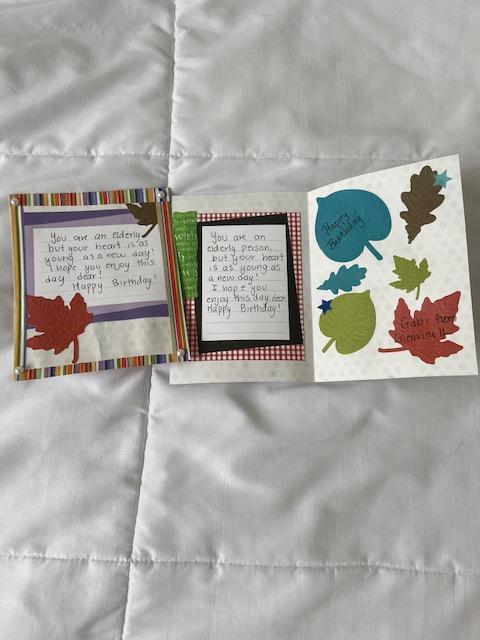 You are an elderly
but your heart is as
young as a new day!
I hope you enjoy this
day dear!
Happy Birthday!
Wish
You are an
elderly person
but your heart
is as young as
a new day!
I hope you
enjoy this day dear,
Happy Birthday!
Happy
Birthday
Gabi from
Glenview